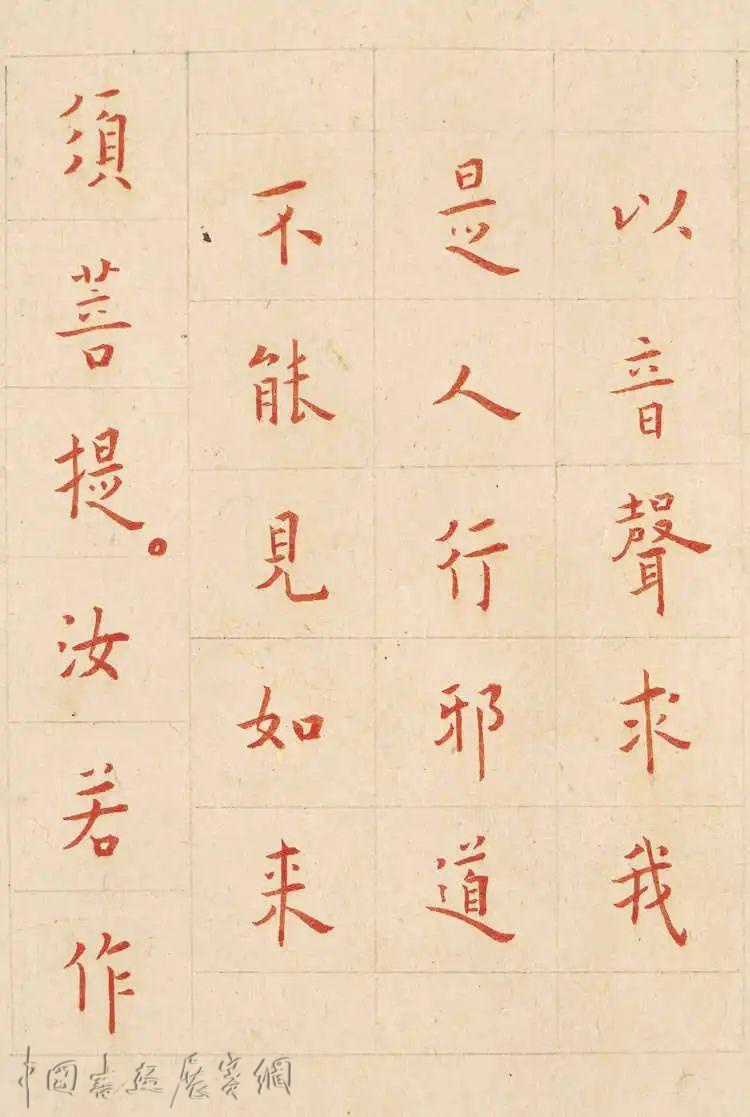 以音聲求我
是人行邪道
不能見如来
須菩提。汝若作
中国书法展赛網